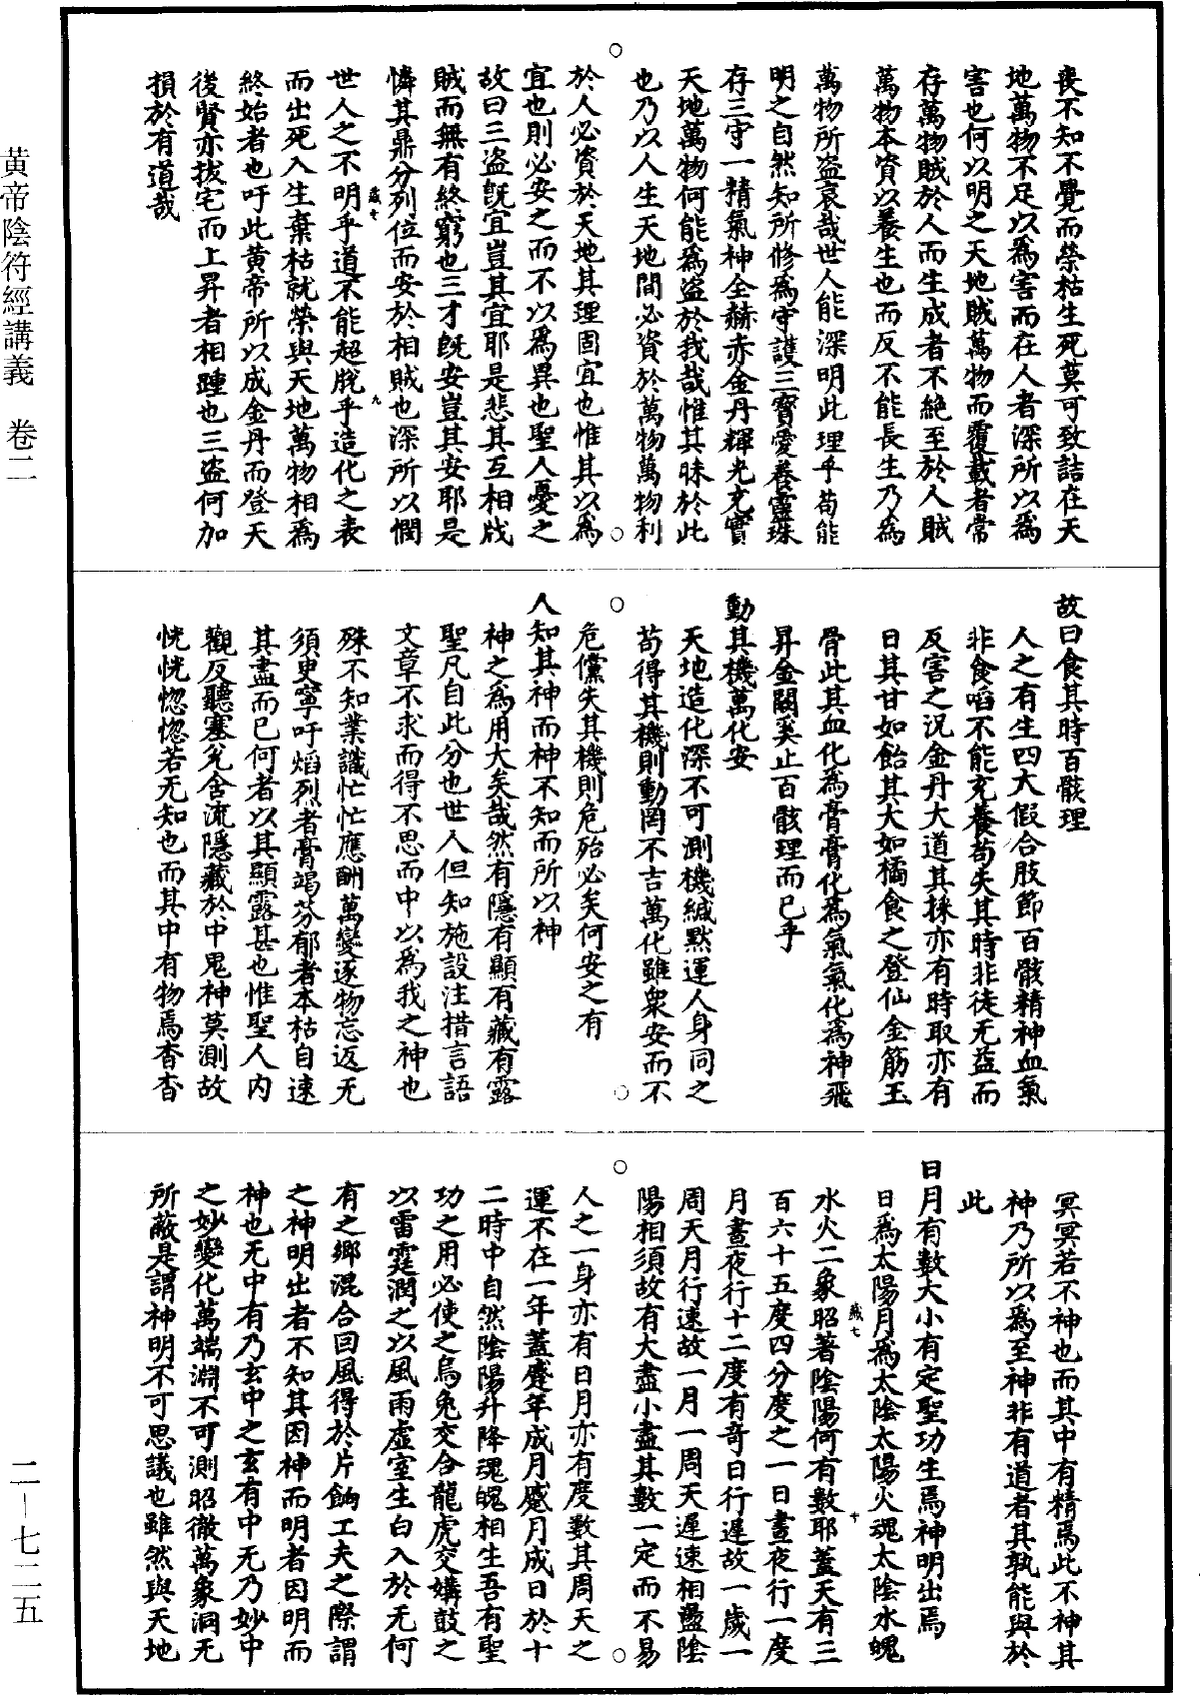 黄帝陰符經講義　卷二
喪不知不覺而榮枯生死莫可致詰在天
地萬物不足以爲害而在人者深所以爲
害也何以明之天地賊萬物而覆載者常
存萬物賊於人而生成者不絶至於人賊
萬物本資以養生也而反不能長生乃爲
萬物所盜哀哉世人能深明此理乎苟能
明之自然知所修爲守護三寶愛養靈珠
存三守一精氣神全赫赤金丹輝光充實
天地萬物何能爲盜於我哉惟其昧於此
也乃以人生天地間必資於萬物萬物利
於人必資於天地其理固宜也惟其以爲
宜也則必安之而不以爲異也聖人憂之
故曰三盜旣宜豈其宜耶是悲其互相戕
賊而無有終窮也三才旣安豈其安耶是
憐其鼎分列位而安於相賊也深所以憫
世人之不明乎道不能超脫乎造化之表
而出死入生棄枯就榮與天地萬物相爲
終始者也吁此黄帝所以成金丹而登天
後賢亦拔宅而上昇者相踵也三盜何加
損於有道哉
故曰食其時百骸理
人之有生四大假合肢節百骸精神血氣
非食啗不能充養苟失其時非徒无益而
反害之況金丹大道其採亦有時取亦有
日其甘如飴其大如橘食之登仙金筋玉
骨此其血化為膏膏化為氣氣化為神飛
昇金闕奚止百骸理而已乎
動其機萬化安
天地造化深不可測機緘默運人身同之
苟得其機則動罔不吉萬化雖衆安而不
危儻失其機則危殆必矣何安之有
人知其神而神不知而所以神
神之為用大矣哉然有隱有顯有藏有露
聖凡自此分也世人但知施設注措言語
文章不求而得不思而中以為我之神也
殊不知業識忙忙應酬萬變逐物忘返无
須臾寧吁焰烈者膏竭芬郁者本枯自速
其盡而已何者以其顯露甚也惟聖人內
觀反聽塞兊含流隱藏於中鬼神莫測故
恍恍惚惚若无知也而其中有物焉杳杳
冥冥若不神也而其中有精焉此不神其
神乃所以爲至神非有道者其孰能與於
此
日月有數大小有定聖功生焉神明出焉
日爲太陽月爲太陰太陽火魂太陰水魄
水火二象昭著陰陽何有數耶蓋天有三
百六十五度四分度之一日晝夜行一度
月晝夜行十二度有奇日行遲故一歲一
周天月行速故一月一周天遲速相盪陰
陽相須故有大盡小盡其數一定而不易
人之一身亦有日月亦有度數其周天之
運不在一年蓋蹙年成月蹙月成日於十
二時中自然陰陽升降魂魄相生吾有聖
功之用必使之烏兔交合龍虎交媾鼓之
以雷霆潤之以風雨虛室生白入於无何
有之鄉混合回風得於片餉工夫之際謂
之神明出者不知其因神而明者因明而
神也无中有乃玄中之玄有中无乃妙中
之妙變化萬端淵不可測昭徹萬象洞无
所蔽是謂神明不可思議也雖然與天地
二—七二五